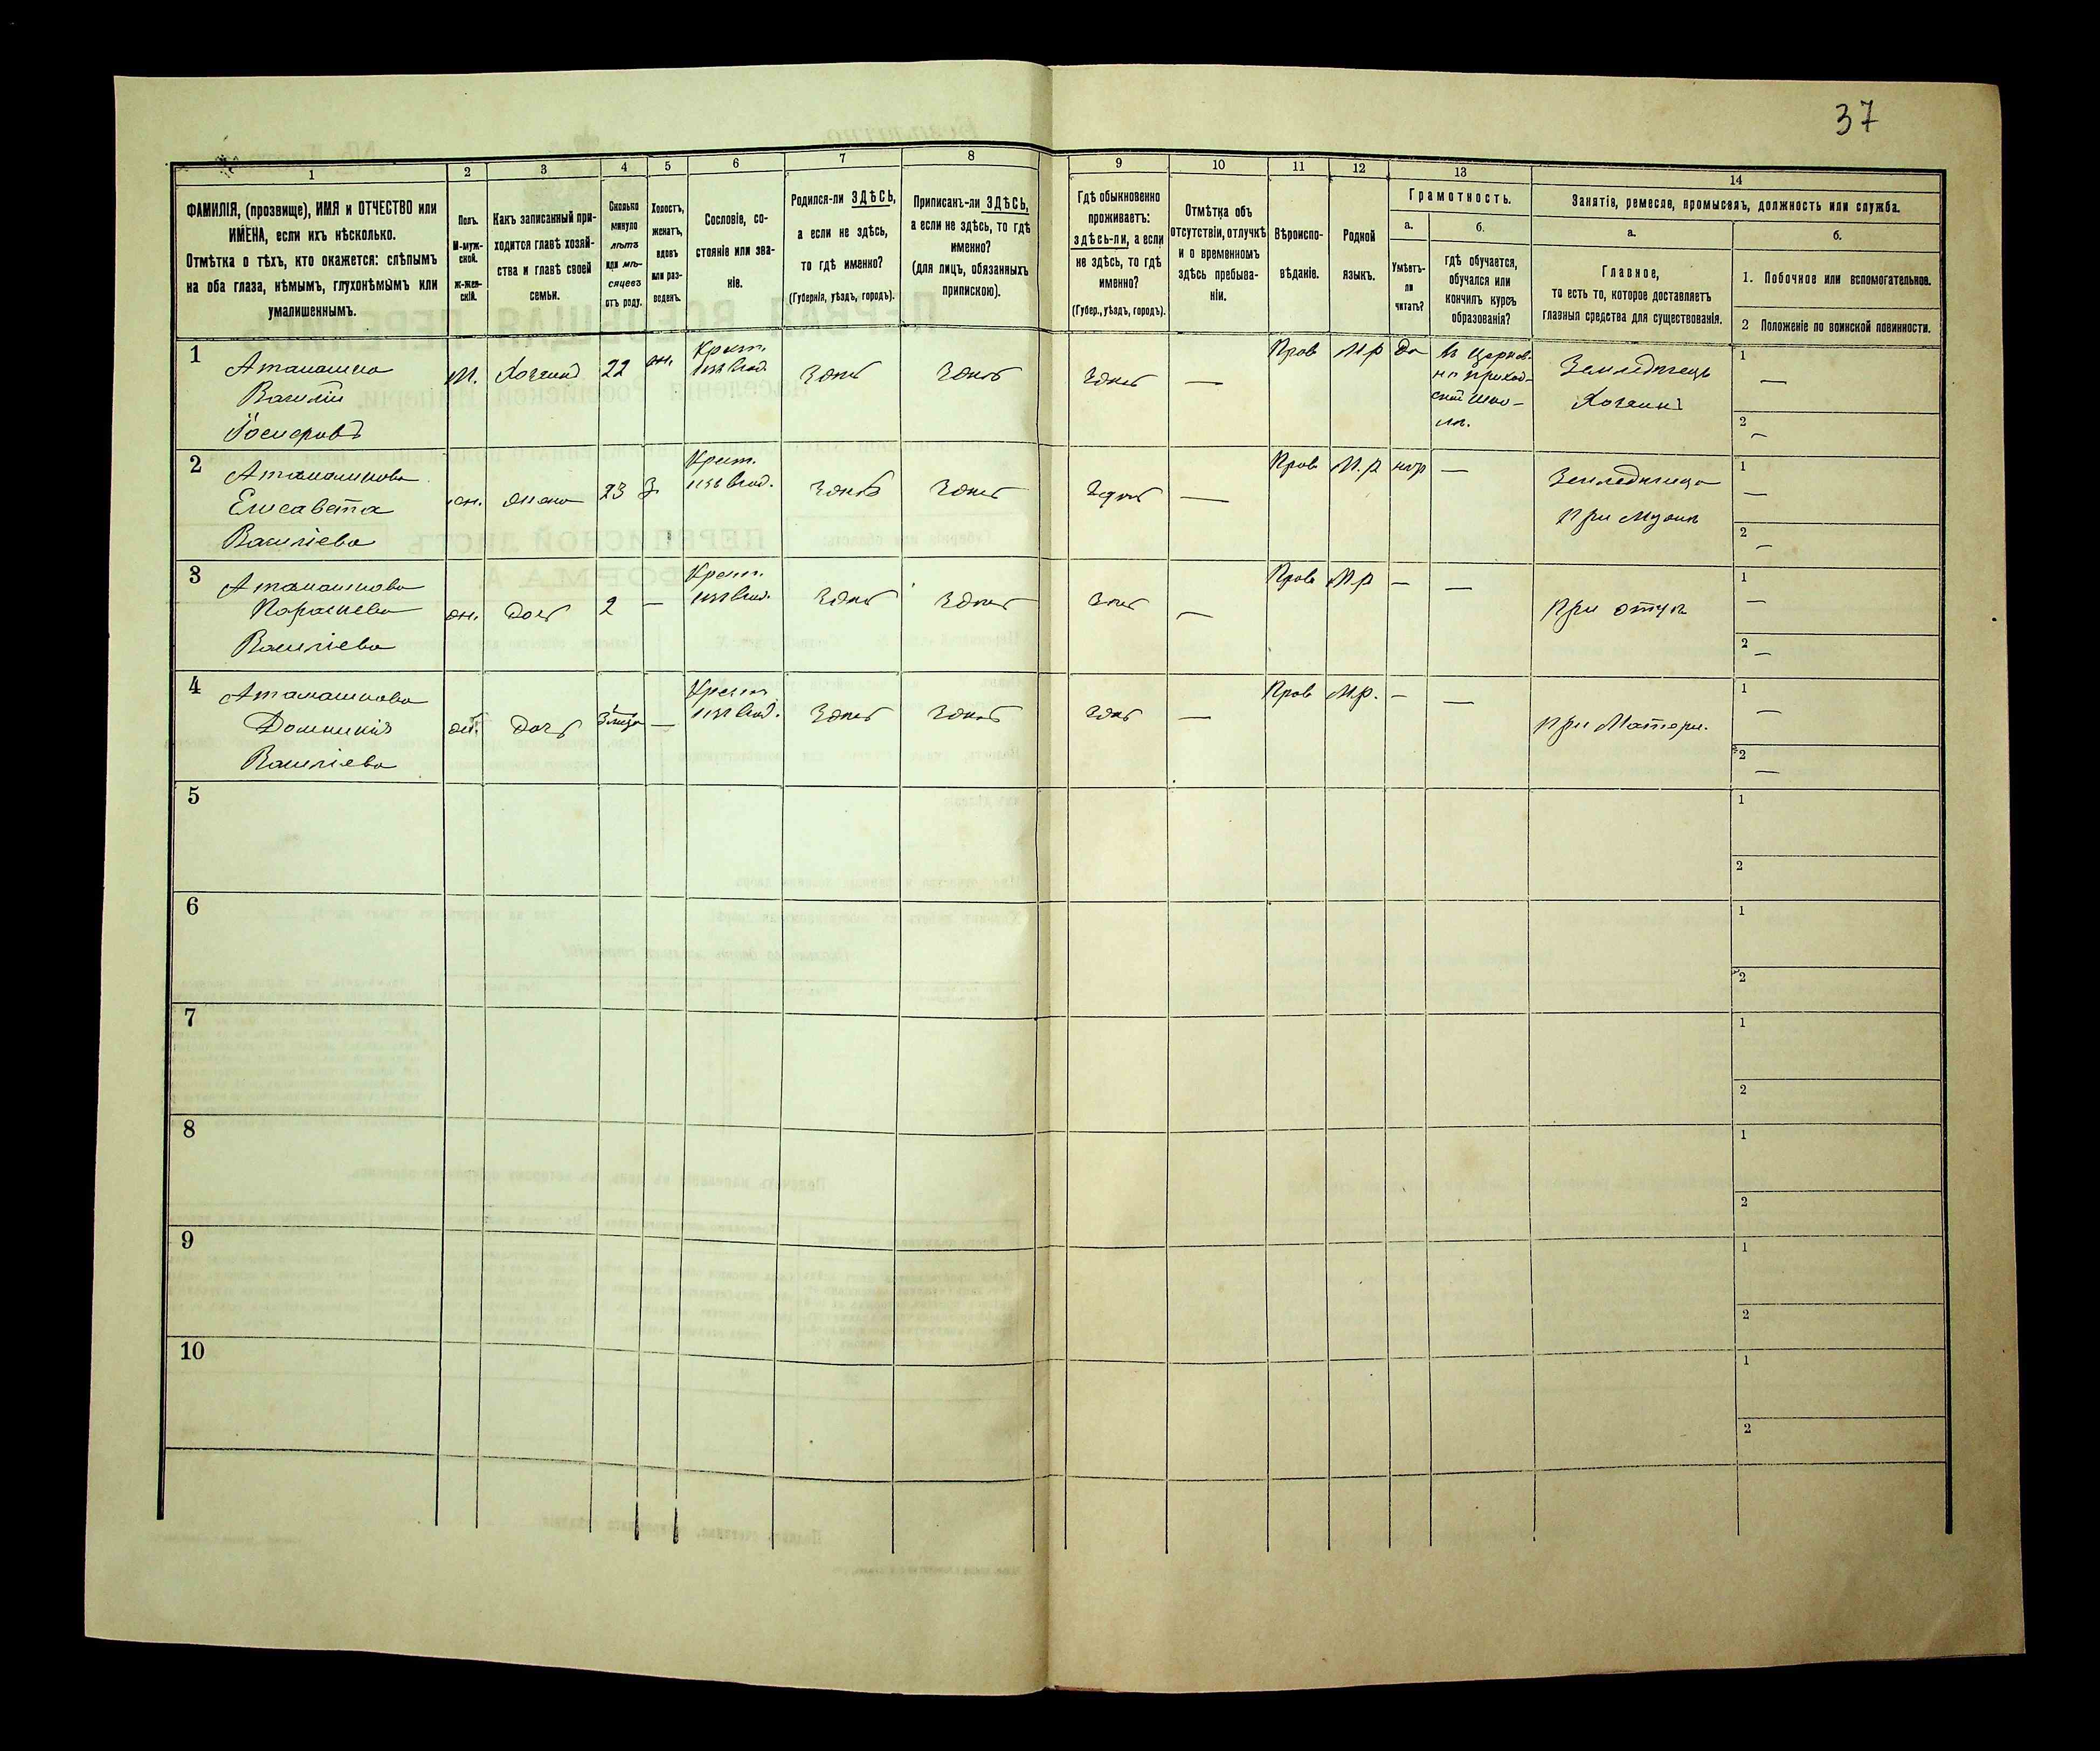 37
1
2
3
4
5
6
7
8
9
10
11
12
13
14
ФАМИЛІЯ, (прозвище), ИМЯ и ОТЧЕСТВО или
ИМЕНА, если ихъ нѣсколько.
Отмѣтка о тѣхъ, кто окажется: слѣпымъ
на оба глаза, нѣмымъ, глухонѣмымъ или
умалишеннымъ.
Полъ.
М-муж-
ской.
Ж-жен-
скій.
Какъ записанный при-
ходится главѣ хозяй-
ства и главѣ своей
семьи.
Сколько
минуло
лѣтъ
или мѣ-
сяцевъ
отъ роду.
Холостъ,
женатъ,
вдовъ
или раз-
веденъ.
Сословіе, со-
стояніе или зва-
ніе.
Родился-ли ЗДѢСЬ,
а если не здѣсь,
то гдѣ именно?
(Губернія, уѣздъ, городъ).
Приписанъ-ли ЗДѢСЬ,
а если не здѣсь, то гдѣ
именно?
(для лицъ, обязанныхъ
припискою).
Гдѣ обыкновенно
проживаетъ:
здѣсь-ли, а если
не здѣсь, то гдѣ
именно?
(Губер., уѣздъ, городъ).
Отмѣтка объ
отсутствіи, отлучкѣ
и о временномъ
здѣсь пребыва-
ніи.
Вѣроиспо-
вѣданіе.
Родной
языкъ.
Грамотность.
а.
Умѣетъ-
ли
читать?
б.
гдѣ обучается,
обучался или
кончилъ курсъ
образованія?
Занятія, ремесло, промыселъ, должность или служба.
а.
Главное,
то есть то, которое доставляетъ
главныя средства для существованія.
б.
1. Побочное или вспомогательное.
2 Положеніе по воинской повинности.
1
Василій
М.
Хозяинъ
22
Крест.
изъ влад.
Здѣсь
Здѣсь
Здѣсь
—
Прав
М.р
Да
въ церков-
но приход-
ской шко-
лѣ.
Земледѣлецъ
Хозяинъ
1
—
2
—
2
Елисавета
Василіева
ж.
жена
23
З.
Крест.
изъ влад.
Здѣсь
Здѣсь
Здѣсь
—
Прав
М.р
нѣт
—
при мужѣ
1
—
2
—
3
Василіева
ж.
дочь
2
—
Крест.
изъ влад.
Здѣсь
Здѣсь
Здѣсь
—
Прав
М.р
—
—
при отцѣ
1
—
2
—
4
Василіева
ж.
дочь
—
Крест.
изъ влад.
Здѣсь
Здѣсь
Здѣсь
—
Прав
М.р.
—
—
при Матери.
1
—
2
—
5
1
2
6
1
2
7
1
2
8
1
2
9
1
2
10
1
2